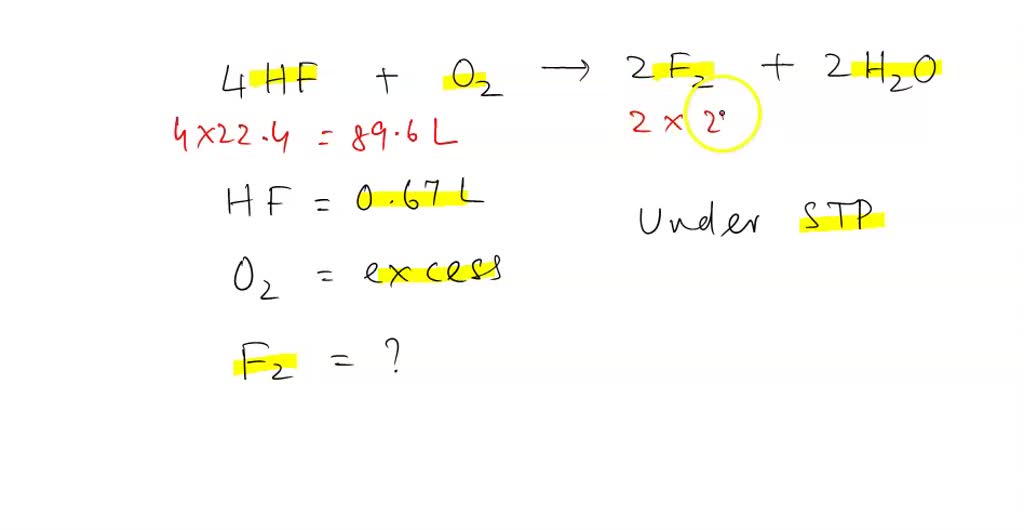 4HF + O₂ → 2F₂ + 2H₂O
4×22.4 = 89.6L 2× 2
HF = 0.67L
Under STP
O₂ = excess
F₂ = ?